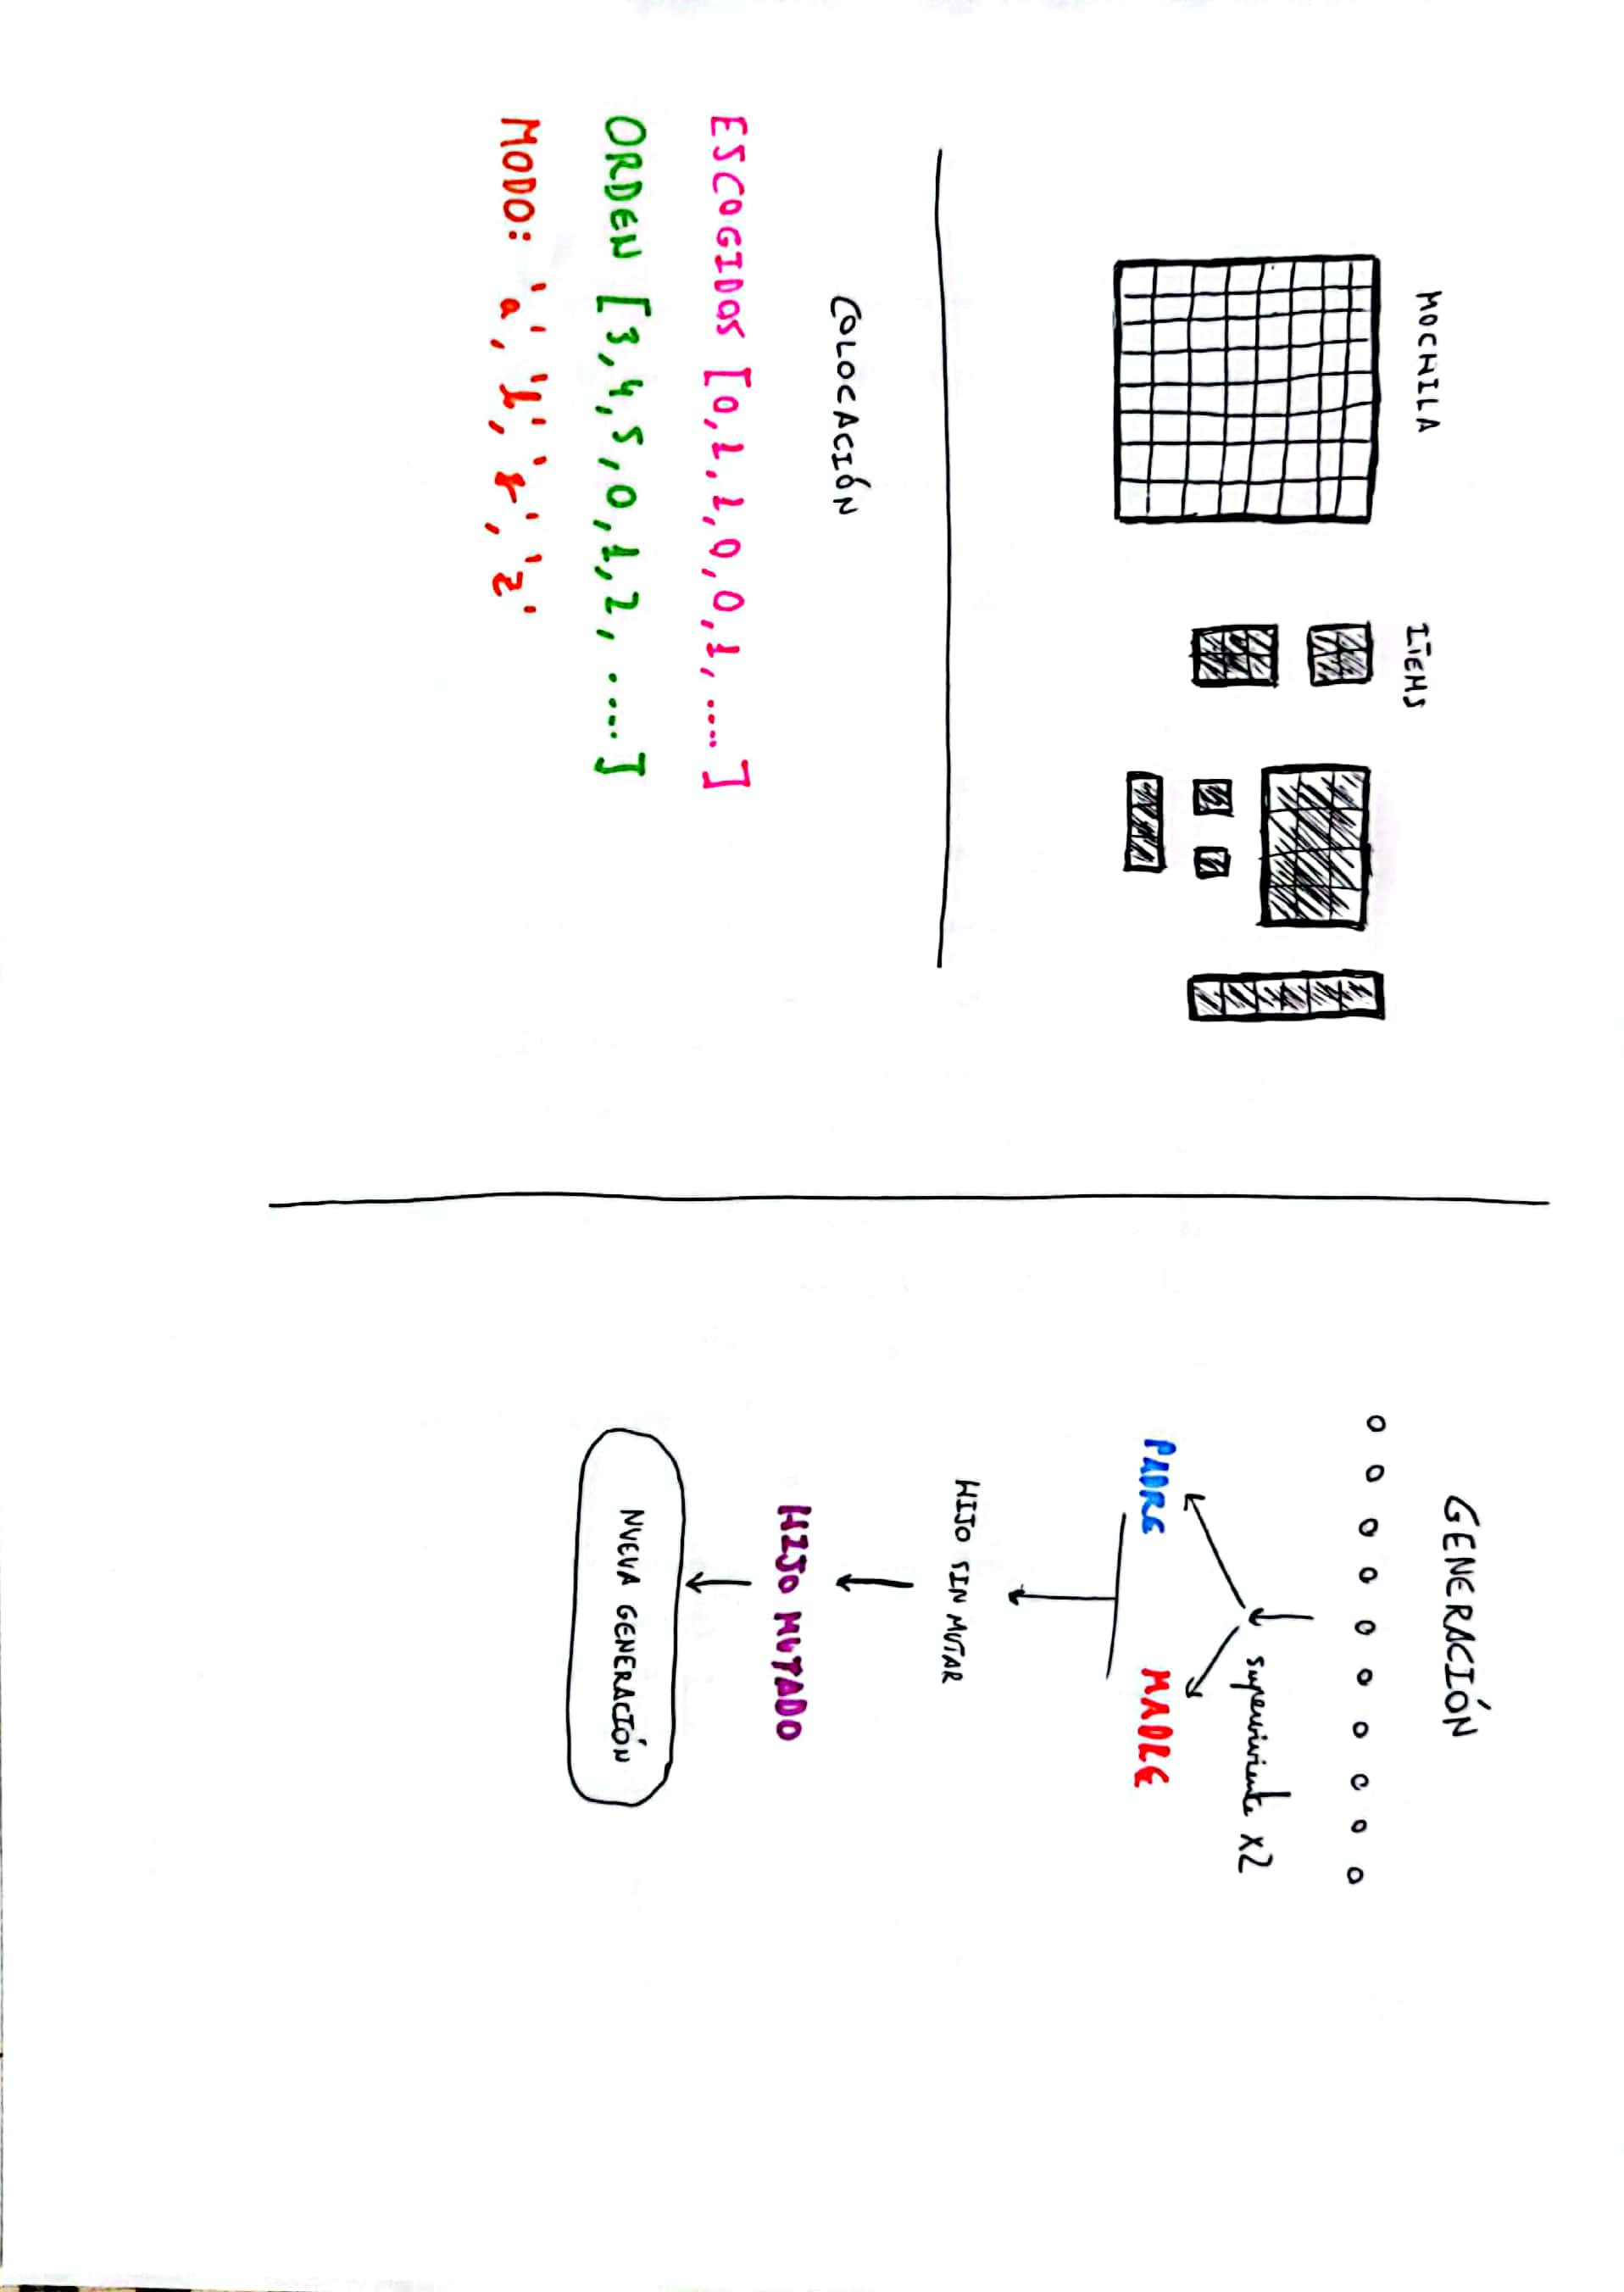 MOCHILA
ITEMS
COLOCACIÓN
ESCOGIDOS [0,1,1,0,0,1,....]
ORDEN [3,4,5,0,1,2,....]
MODO: 'a', 'l', 'r', 'z'
GENERACIÓN
superviviente x2
PADRE
MADRE
HIJO SIN MUTAR
HIJO MUTADO
NUEVA GENERACIÓN